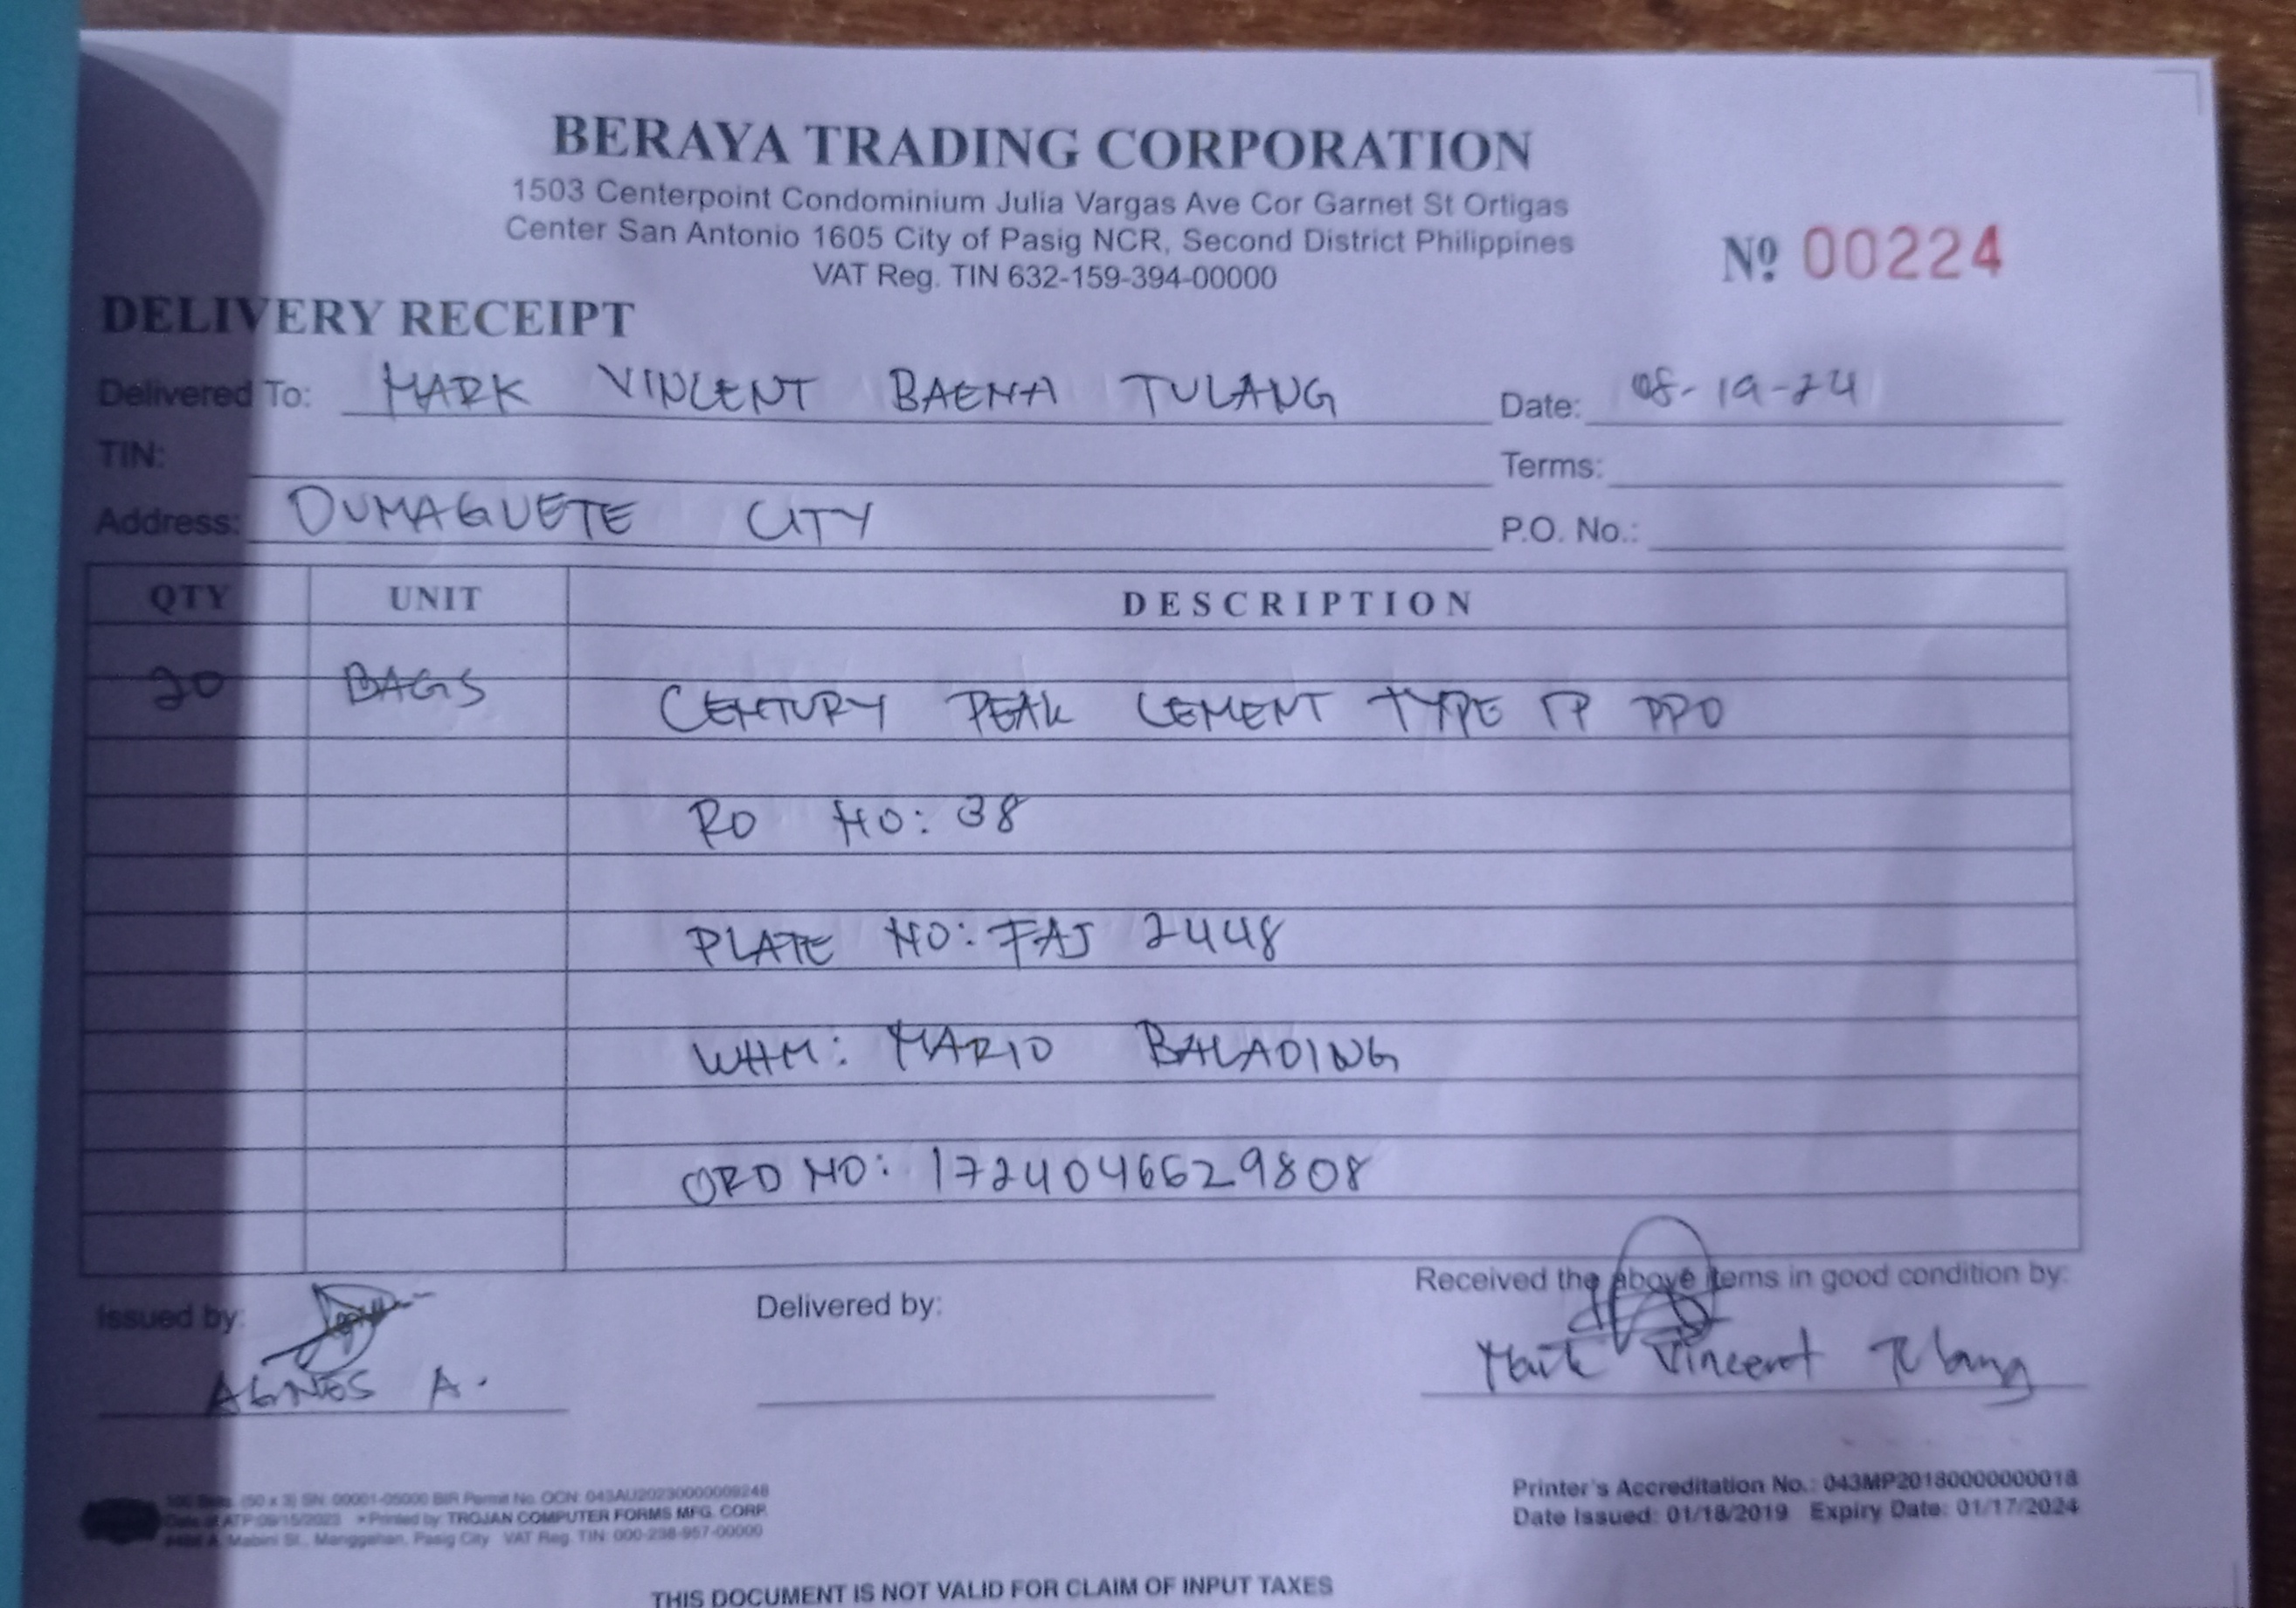 BERAYA TRADING CORPORATION
1503 Centerpoint Condominium Julia Vargas Ave Cor Garnet St Ortigas
Center San Antonio 1605 City of Pasig NCR, Second District Philippines
VAT Reg. TIN 632-159-394-00000
Nº 00224
DELIVERY RECEIPT
Delivered To: MARK VINCENT BAENA TULANG Date: 08-19-24
TIN: Terms:
Address: DUMAGUETE CITY P.O. No.:
QTY UNIT DESCRIPTION
20 BAGS CENTURY PEAK CEMENT TYPE 1P
RO NO: 38
PLATE NO: FAJ 2448
WHM: MARIO BALADING
ORD NO: 1724046629808
Received the above items in good condition by:
Issued by: Delivered by:
AGNES A. Mark Vincent Tulang
(50 x 3) SN: 00001-05000 BIR Permit No. OCN: 043AU20230000009248
Printed by: TROJAN COMPUTER FORMS MFG. CORP.
A. Mabini St., Manggahan, Pasig City VAT Reg. TIN: 000-238-957-00000
Printer's Accreditation No.: 043MP20180000000018
Date Issued: 01/18/2019 Expiry Date: 01/17/2024
THIS DOCUMENT IS NOT VALID FOR CLAIM OF INPUT TAXES